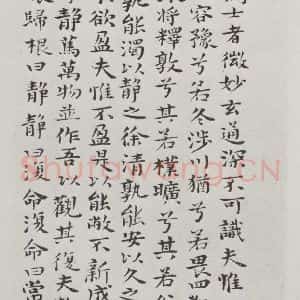 士者微妙玄通深不可識夫惟
容豫兮若冬涉川猶兮若畏四
将釋敦兮其若樸曠兮其若
孰能濁以靜之徐清孰能安以久之
不欲盈夫惟不盈是以能敝不新成
靜篤萬物並作吾以觀其復夫
歸根曰靜靜曰復命復命曰常
Shufawang.CN